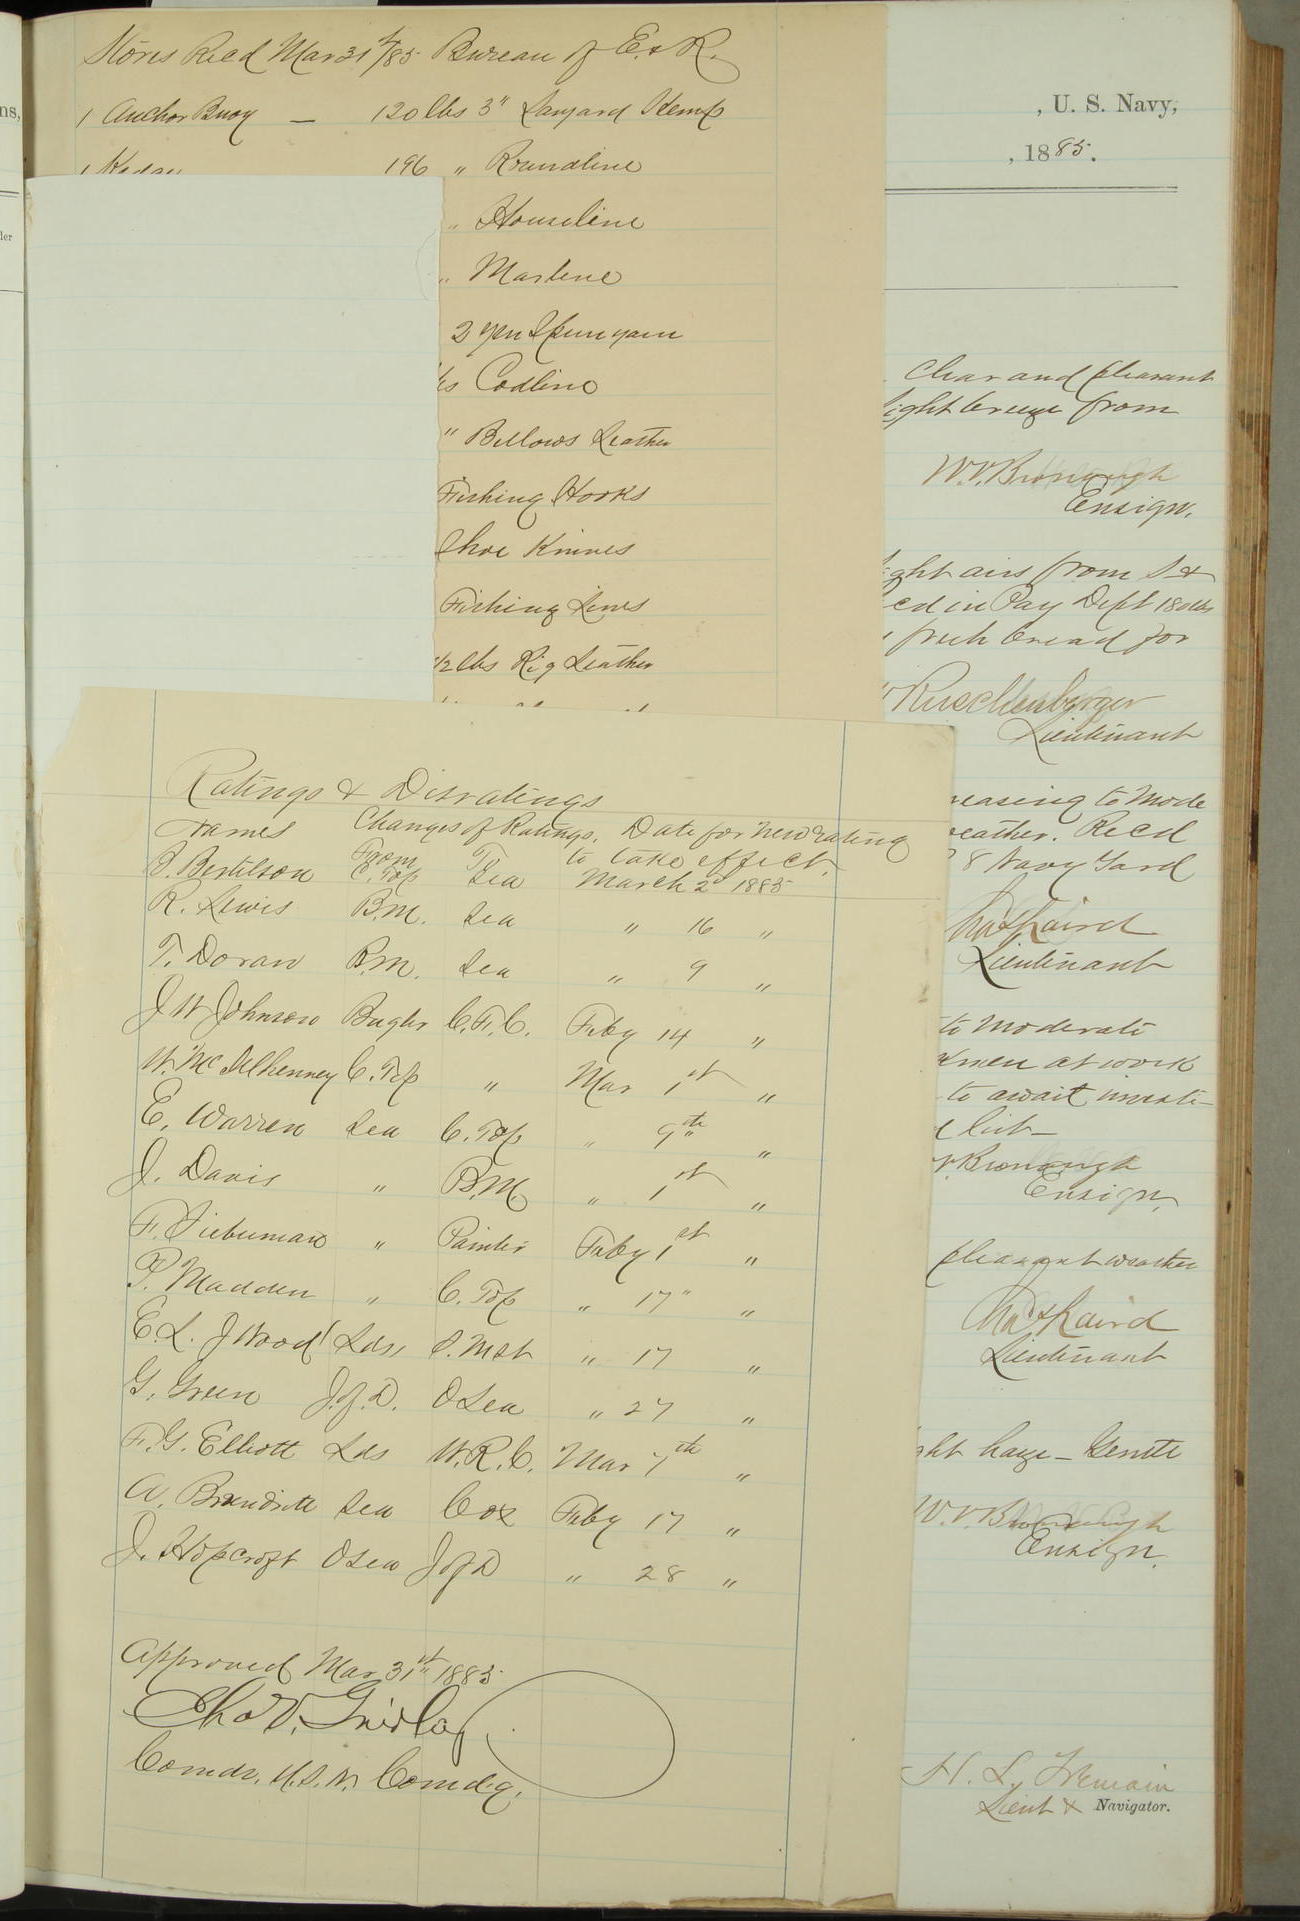 Stores Recd Mar 31st/85 Bureau of E. & R.
1 Anchor Buoy — 120 lbs 3" Lanyard Hemp
1 Kedge 196 " Roundline
" Houseline
" Marline
2 yrn Spunyarn
lbs Codline
" Bellows Leather
Fishing Hooks
Shoe Knives
Fishing Lines
1/2 lbs Rig Leather
Ratings & Disratings
Names Changes of Ratings. Date for new rating
From To to take effect.
Bertilson C. Top Sea March 2d 1885
R. Lewis B.M. Sea " 16 "
T. Doran B.M. Sea " 9 "
J W Johnson Bugler C.F.C. Feby 14 "
W. McIlhenney C. Top " Mar 1st "
E. Warren Sea C. Top " 9th "
J. Davis " B.M. " 1st "
F. Lieberman " Painter Feby 1st "
P. Madden " C. Top " 17" "
E. L. J Wood Lds, S. Mst " 17 "
G. Green J. of D. O Sea " 27 "
F. G. Elliott Lds W. R. C. Mar 7th "
A. Sea Cox Feby 17 "
J. Hopcroft O Sea J of D " 28 "
Approved Mar 31st 1885
Chas V. Gridley
Comdr. U.S.N. Comd'g.
ns,
der
, U. S. Navy,
, 1885.
Clear and pleasant
light breeze from
W. V. Bronaugh
Ensign.
ght airs from S &
ed in Pay Dept 180 lbs
fresh bread for
Ruschenberger
Lieutenant
reasing to Mode
weather. Recd
8 Navy Yard
Chas Laird
Lieutenant
to moderate
kmen at work
to await investi-
list—
V. Bronaugh
Ensign,
pleasant weather
Chas Laird
Lieutenant
ght haze — Gentle
W. V. Bronaugh
Ensign.
H. L. Tremain
Lieut & Navigator.